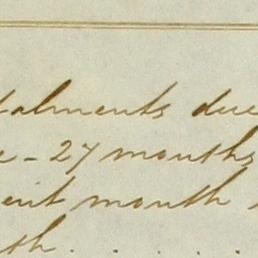 talments due
e - 27 months
ent month
th . . . .